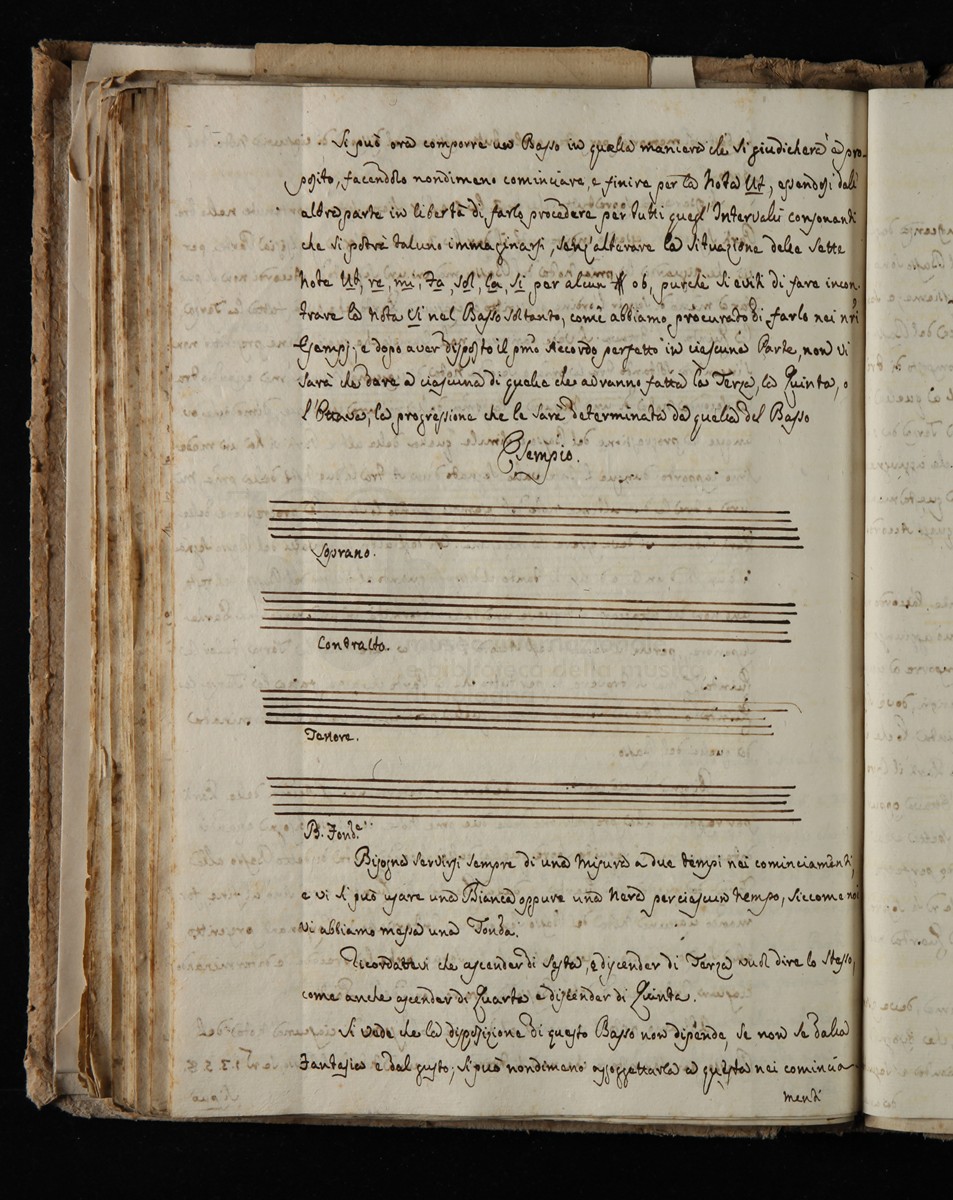 Si può ora comporre un Basso in quella maniera che si giudicherà a pro-
posito, facendolo nondimeno cominciare, e finire per la Nota Ut, essendosi dall'
altra parte in libertà di farlo procedere per tutti quegl'Intervalli consonanti
che si potrà taluno immaginarsi, senz'alterare la situazione delle sette
Note Ut, re, mi, Fa, sol, la, si per alcun # o b, purchè si eviti di fare incon-
trare la Nota Si nel Basso soltanto, come abbiamo procurato di farlo nei nri
Esempj; e dopo aver disposto il pmo Accordo perfetto in ciascuna Parte, non vi
sarà che dare a ciascuna di quelle che avranno fatta la Terza, la Quinta, o
l'Ottava, la progressione che le sarà determinata da quella del Basso
Esempio.
Soprano.
Contralto.
Tenore.
B. Fond.e
Bisogna servirsi sempre di una Misura a due tempi nei cominciamenti,
e vi si può usare una Bianca oppure una Nera per ciascun tempo, siccome noi
vi abbiamo messa una Tonda.
Ricordattevi che ascender di Sesta, e discender di Terza vuol dire lo stesso,
come anche ascender di Quarta e discender di Quinta.
Si vede che la disposizione di questo Basso non dipende, se non se dalla
Fantasia e dal gusto; si può nondimeno assoggettarla a questa nei comincia-
menti